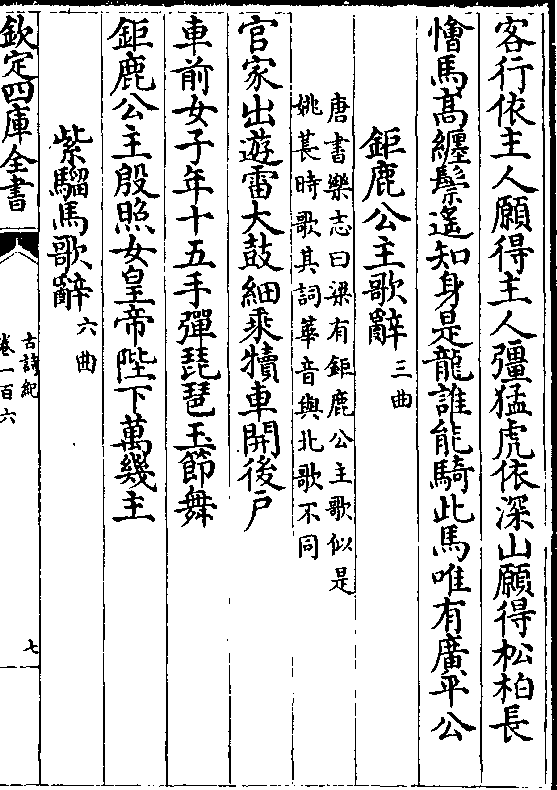 客行依主人願得主人彊猛虎依深山願得松柏長
憎馬高纏鬃遙知身是龍誰能騎此馬唯有廣平公
鉅鹿公主歌辭三曲
唐書樂志曰梁有鉅鹿公主歌似是
姚萇時歌其詞華音與北歌不同
官家出遊雷大鼓細乘犢車開後户
車前女子年十五手彈琵琶玉節舞
鉅鹿公主殷照女皇帝陛下萬幾主
紫騮馬歌辭六曲
欽定四庫全書
古詩紀
卷一百六
七